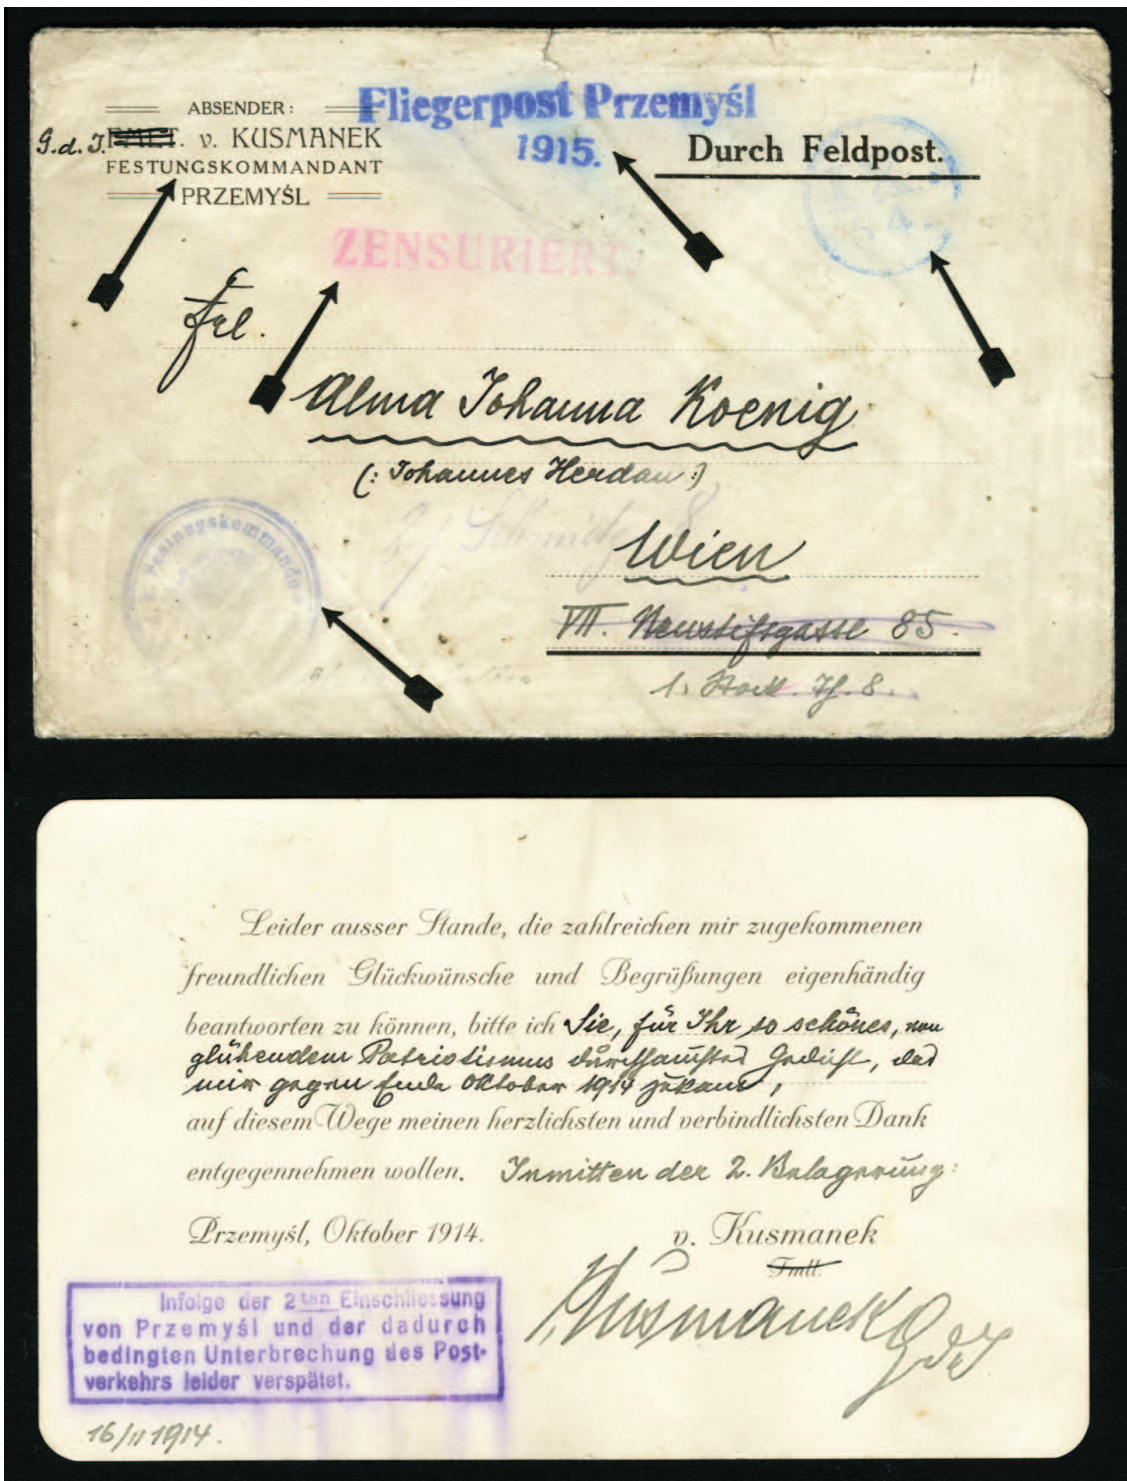 ABSENDER:
G.d.I. v. KUSMANEK
FESTUNGSKOMMANDANT
PRZEMYŚL
Fliegerpost Przemyśl
1915.
Durch Feldpost.
ZENSURIERT.
Frl.
Alma Johanna Koenig
(: Johannes Herdan :)
Wien
VII. Neustiftgasse 85.
1. Stock. Tf. 8.
Festungskommando
Leider ausser Stande, die zahlreichen mir zugekommenen
freundlichen Glückwünsche und Begrüßungen eigenhändig
beantworten zu können, bitte ich Sie, für Ihr so schönes, von
glühendem Patriotismus durchhauchtes Gedicht, das
mir gegen Ende Oktober 1914 zukam,
auf diesem Wege meinen herzlichsten und verbindlichsten Dank
entgegennehmen wollen. Inmitten der 2. Belagerung:
Przemyśl, Oktober 1914.
v. Kusmanek
Fmlt.
Kusmanek GdI
Infolge der 2ten Einschliessung
von Przemyśl und der dadurch
bedingten Unterbrechung des Post-
verkehrs leider verspätet.
16/11 1914.